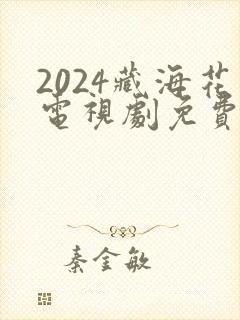 2024藏海花
電視劇免費
秦金敏